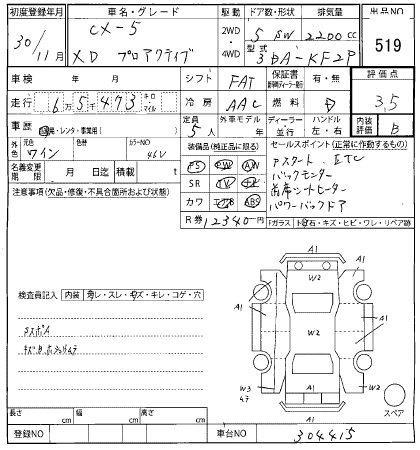 初度登録年月 車名・グレード 駆動 ドア数・形状 排気量 出品NO
30/11月 CX-5 2WD・4WD 5 SW 2200 cc 519
XD プロアクティブ 型式 3DA-KF2P
車検 年 月 シフト FAT 保証書 有・無 評価点
走行 6万5千473 キロ・マイル 冷房 AAC 燃料 3.5
車歴 自家・レンタ・事業用( ) 定員 5人 外車モデル 年 ディーラー・並行 ハンドル 左・右 内装評価 B
外色 元色 ワイン 色替 カラーNO 46V 装備品(純正品に限る) セールスポイント(正常に作動するもの)
名義変更期限 月 日迄 積載 t PS PW AW
注意事項(欠品・修復・不具合箇所および状態) SR TV ナビ
カワ エアB ABS
R券 12340円
Aスタート ETC
バックモニター
前席シートヒーター
パワーバックドア
Fガラス ト石・キズ・ヒビ・ワレ・リペア跡
検査員記入 内装 ヨレ・スレ・キズ・キレ・コゲ・穴
A1
A1
W2
A1
A1
W2
A1
A1
W3
W2
A1
スペア
長さ cm 幅 cm 高さ cm
登録NO 車台NO 304415